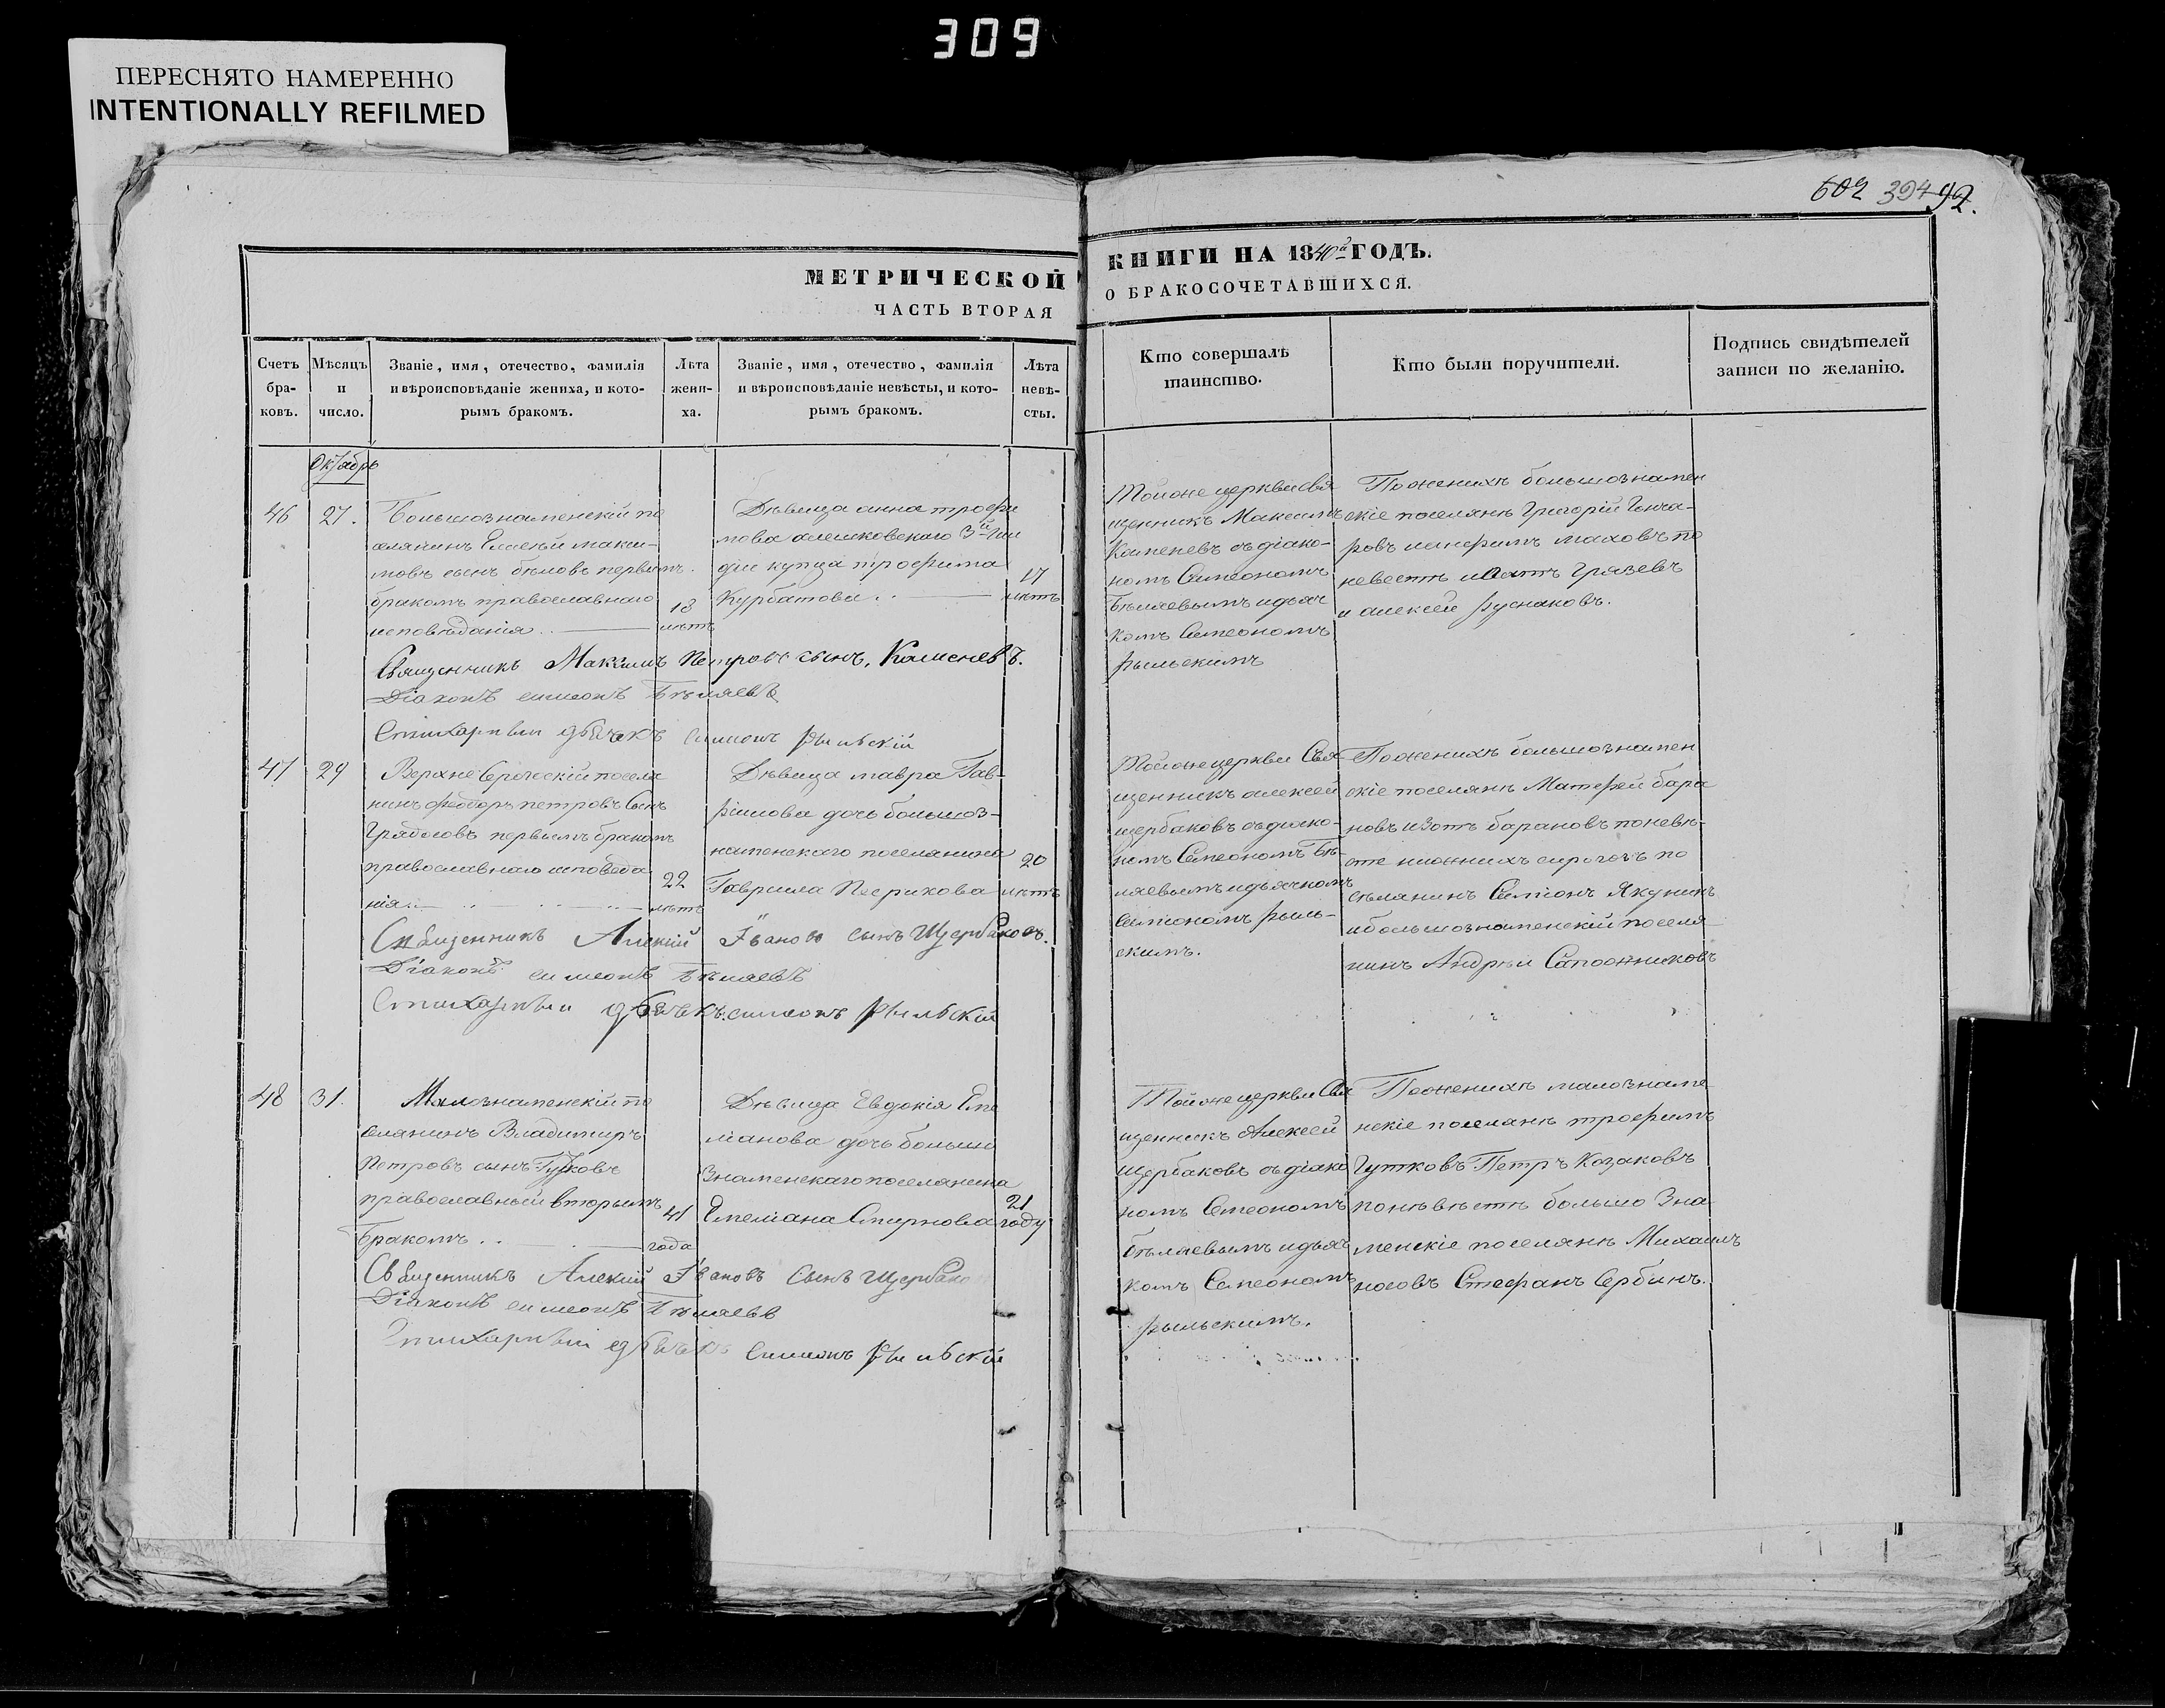 309
ПЕРЕСНЯТО НАМЕРЕННО
INTENTIONALLY REFILMED
602 394 92.
МЕТРИЧЕСКОЙ
ЧАСТЬ ВТОРАЯ
КНИГИ НА 1840й ГОДЪ.
О БРАКОСОЧЕТАВШИХСЯ.
Счетъ
бра-
ковъ.
Мѣсяцъ
и
число.
Званіе, имя, отечество, фамилія
и вѣроисповѣданіе жениха, и кото-
рымъ бракомъ.
Лѣта
жени-
ха.
Званіе, имя, отечество, фамилія
и вѣроисповѣданіе невѣсты, и кото-
рымъ бракомъ.
Лѣта
невѣ-
сты.
Кто совершалъ
таинство.
Кто были поручители.
Подпись свидѣтелей
записи по желанію.
Октябрь
46
27.
Большознаменскій по
селянинъ Елисей макси-
мовъ сынъ бѣловъ первымъ
бракомъ православнаго
исповѣданія
18
лѣтъ
Дѣвица анна трофи
мова алешковскаго 3й гил
діи купца трофима
Курбатова
17
лѣтъ
Тойже церкви свя
щенникъ Максимъ
Каменевъ съ діако-
номъ Симеономъ
Бѣляевымъ и дьяч
комъ Симеономъ
рыльскимъ
По женихѣ большознамен
скіе поселянѣ Григорій Гонча-
ровъ маховъ по
невестѣ Грязевъ
и алексей русмаковъ.
Священникъ Максимъ Петровъ сынъ, Каменевъ.
Діаконъ симеонъ Бѣляевъ
Стихарный дьячекъ симеонъ рыльскій
47
29
Верхне Серогскій посели
нинъ феодоръ петровъ Сынъ
первымъ бракомъ
православнаго исповеда
нія
22
лѣтъ
Дѣвица мавра Гав-
рілова дочь большоз-
наменскаго поселянина
Гавриила
20
лѣтъ
Тойже церкви Свя
щенникъ алексей
щербаковъ съ діако-
номъ Симеономъ Бѣ-
ляевымъ и дьячкомъ
Симеономъ рыль-
скимъ.
По женихѣ большознамен
скіе поселянѣ Матфей бара
новъ изотъ барановъ по невѣ-
сте нижнихъ сирогозъ по
селянинъ Симіонъ Якунинъ
и большознаменскій поселя
нинъ Андрей Сапожниковъ
Священникъ Алексій Іванов сынъ Щербаковъ.
Діаконъ симеонъ Бѣляевъ
Стихарный дьячекъ симеонъ рыльскій
48
31.
Малознаменскій по
селянинъ Владимиръ
Петровъ сынъ Гутковъ
православный вторымъ
бракомъ
41
года
Дѣвица Евдокія Еме
ліанова дочь больше
Знаменскаго поселянина
Емеліана Смирнова
21
году
Тойже церкви Свя
щенникъ Алексей
щербаковъ съ діако
номъ Симеономъ
бѣляевымъ и дьяч
комъ Симеономъ
рыльскимъ.
По женихѣ малознаме
нскіе поселянѣ трофимъ
Гутковъ Петръ Козаковъ
по невѣстѣ большо Зна
менскіе поселянѣ Михаилъ
носовъ Стефанъ Сербинъ.
Священникъ Алексій Івановъ Сынъ Щербако
Діаконъ симеонъ Бѣляевъ
Стихарный дьячекъ симеонъ рыльскій